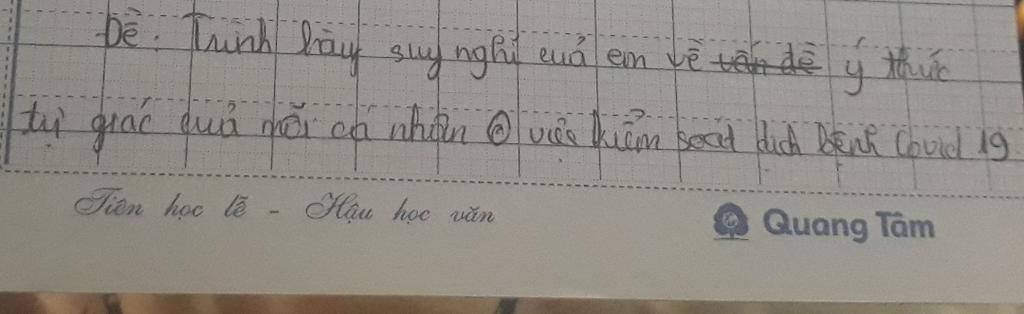 Đề: Trình bày suy nghĩ của em về vấn đề ý thức
tự giác của mỗi cá nhân ở việc kiểm soát dịch bệnh Covid 19
Tiên học lễ - Hậu học văn
Quang Tâm